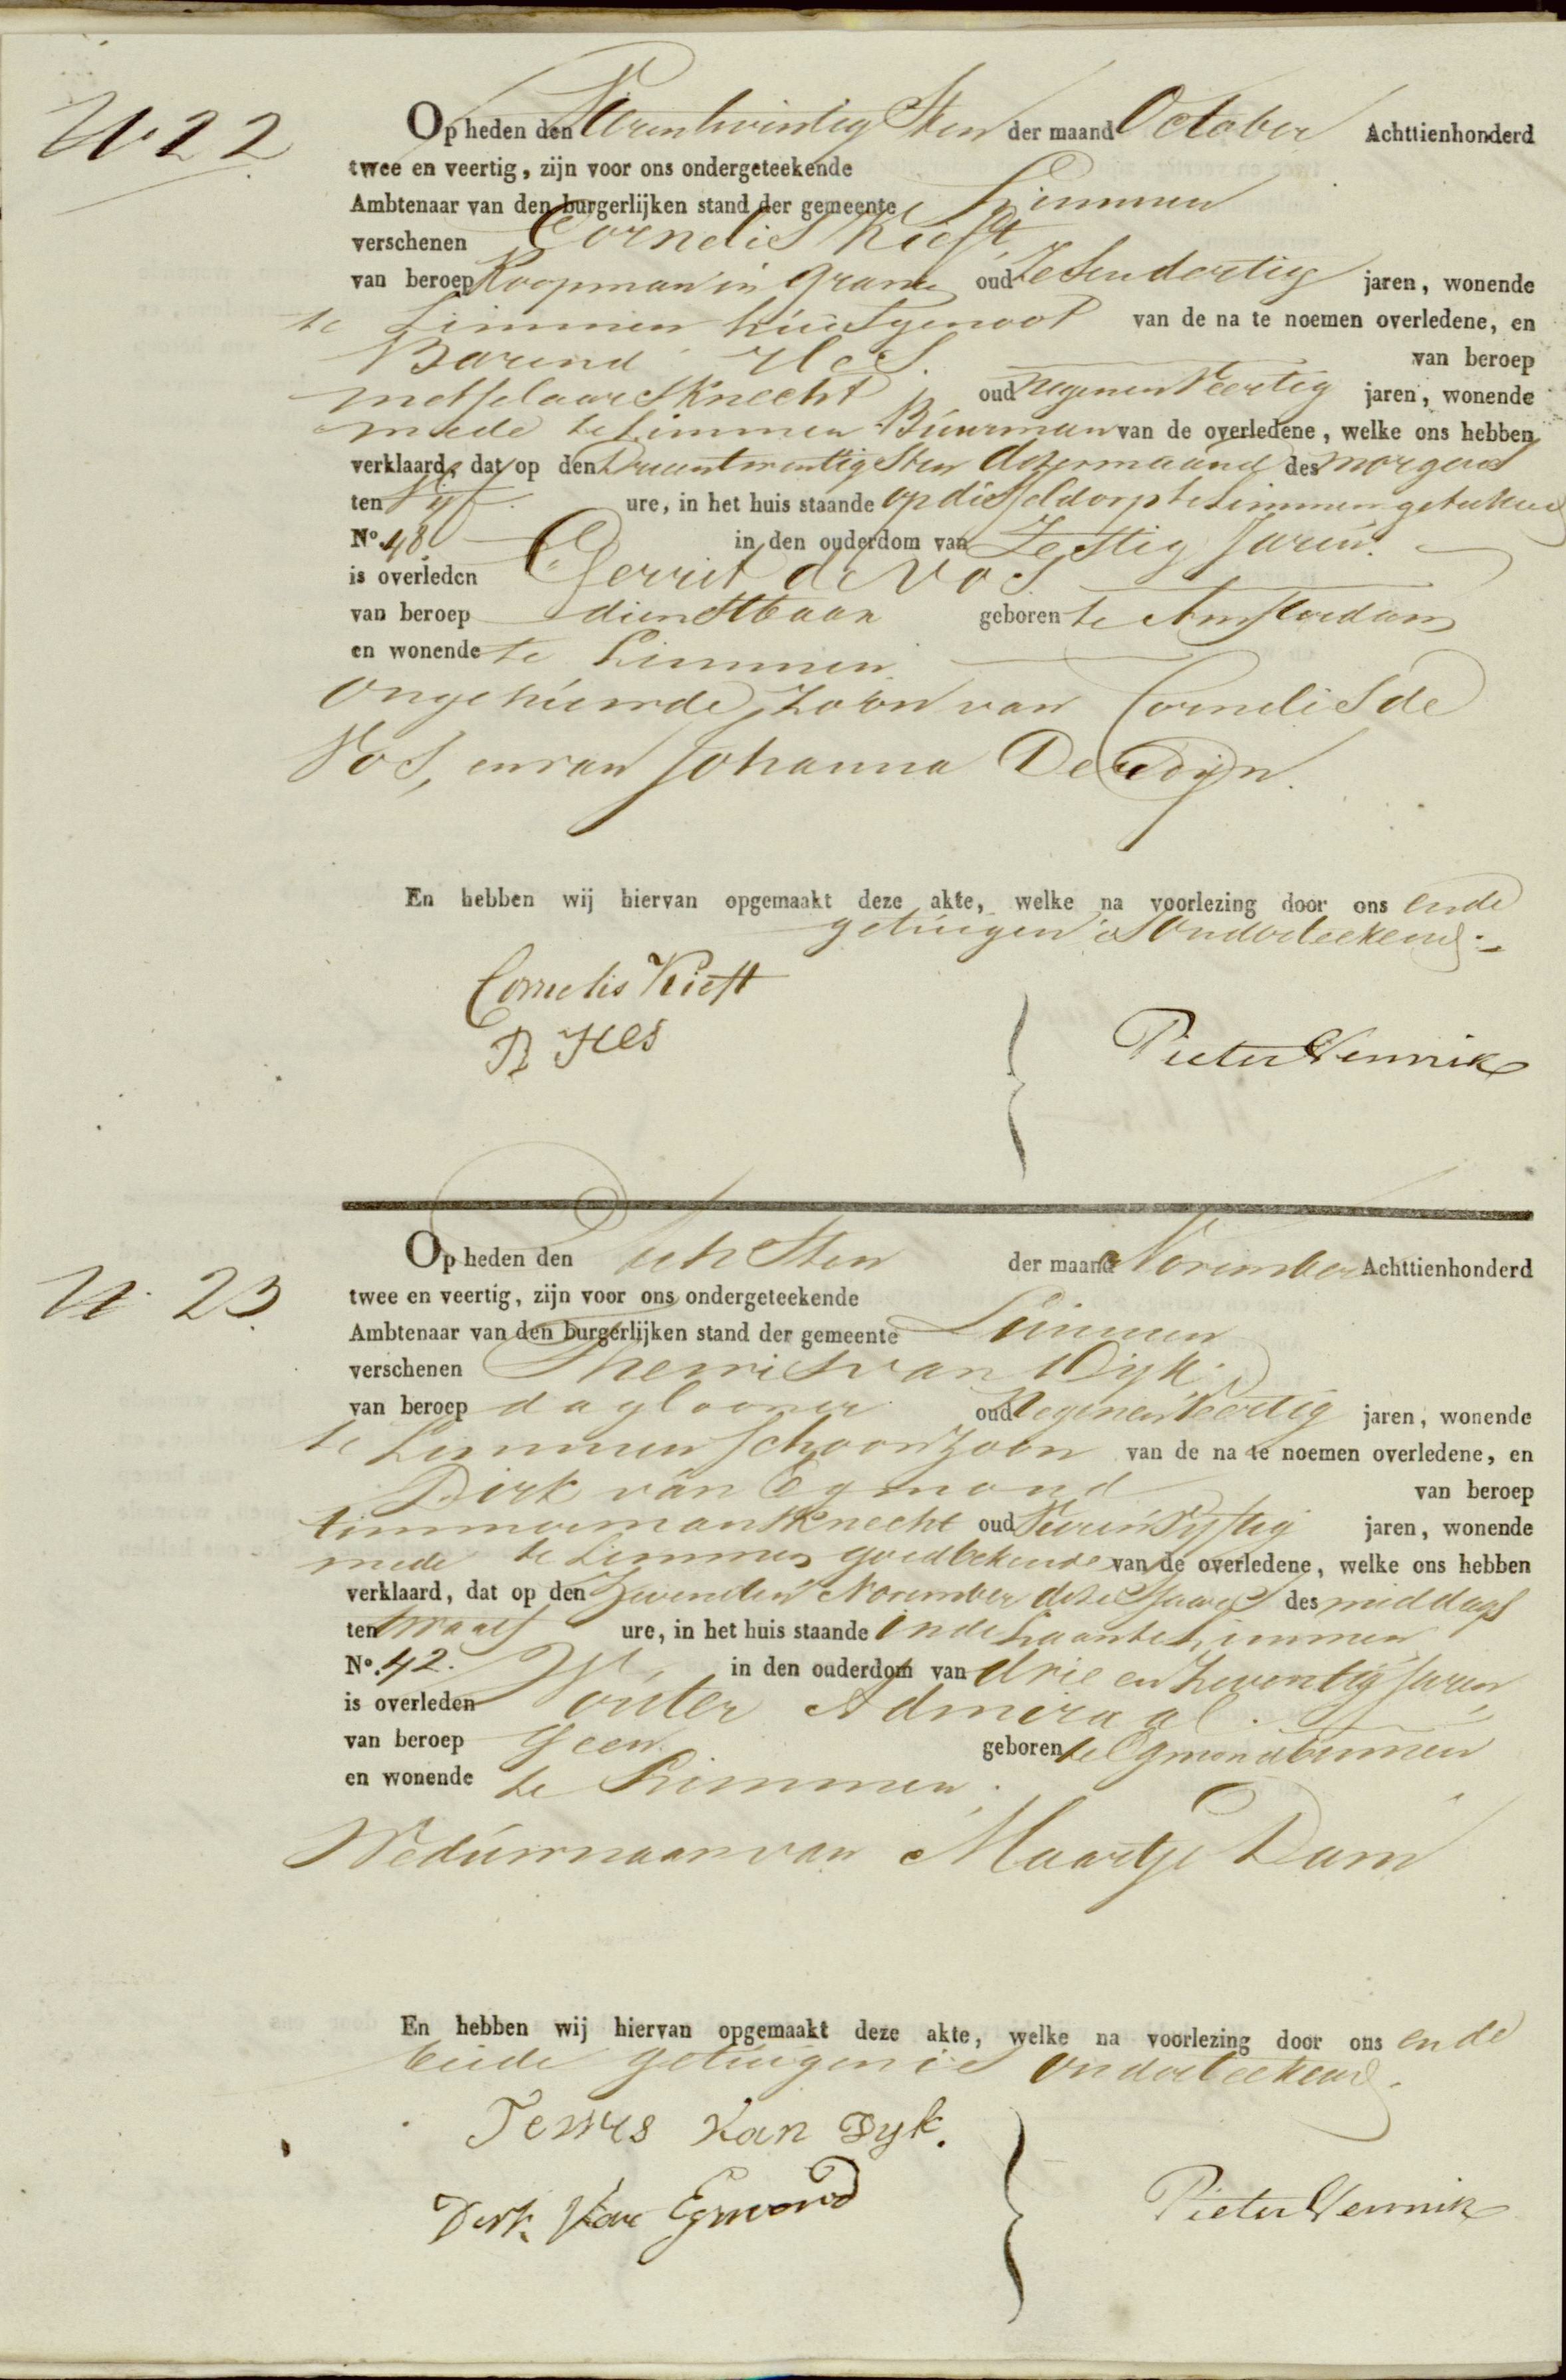 N. 22
Op heden den Vierentwintigsten der maand October Achttienhonderd
twee en veertig, zijn voor ons ondergeteekende
Ambtenaar van den burgerlijken stand der gemeente Limmen
verschenen Cornelis Kieft,
van beroep Koopman in Granen oud Zesendertig jaren, wonende
te Limmen huisgenoot van de na te noemen overledene, en
Barend Hes. van beroep
metselaarsknecht oud Negenenveertig jaren, wonende
mede te Limmen Buurman van de overledene, welke ons hebben
verklaard, dat op den Drieentwentigsten dezer maand des morgens
ten Vyf ure, in het huis staande op disseldorp te Limmen getekend
No. 48 in den ouderdom van Zestig Jaren.
is overleden Gerrit de Vos.
van beroep dienstbaar geboren te Amsterdam
en wonende te Limmen.
Ongehuwde Zoon van Cornelis de
Vos, en van Johanna
En hebben wij hiervan opgemaakt deze akte, welke na voorlezing door ons en de
getuigen is Onderteekend.
Cornelis Kieft
B Hes
Pieter Vennik
N. 23
Op heden den Achtsten der maand November Achttienhonderd
twee en veertig, zijn voor ons ondergeteekende
Ambtenaar van den burgerlijken stand der gemeente Limmen
verschenen van Dijk.
van beroep daglooner oud Negenenveertig jaren, wonende
te Limmen Schoonzoon van de na te noemen overledene, en
Dirk van Egmond van beroep
timmermansknecht oud jaren, wonende
mede te Limmen goedbekende van de overledene, welke ons hebben
verklaard, dat op den Zevenden November dezes Jaars des middags
ten twaalf ure, in het huis staande in de Laan te Limmen
No. 42. in den ouderdom van drie en Zeventig Jaren,
is overleden Wouter Admiraal.
van beroep Geen. geboren te Egmond binnen
en wonende te Limmen.
Weduwnaar van Maartje Dam
En hebben wij hiervan opgemaakt deze akte, welke na voorlezing door ons en de
beide getuigen is onderteekend.
Tewes Van Dyk.
Dirk Van Egmond
Pieter Vennik